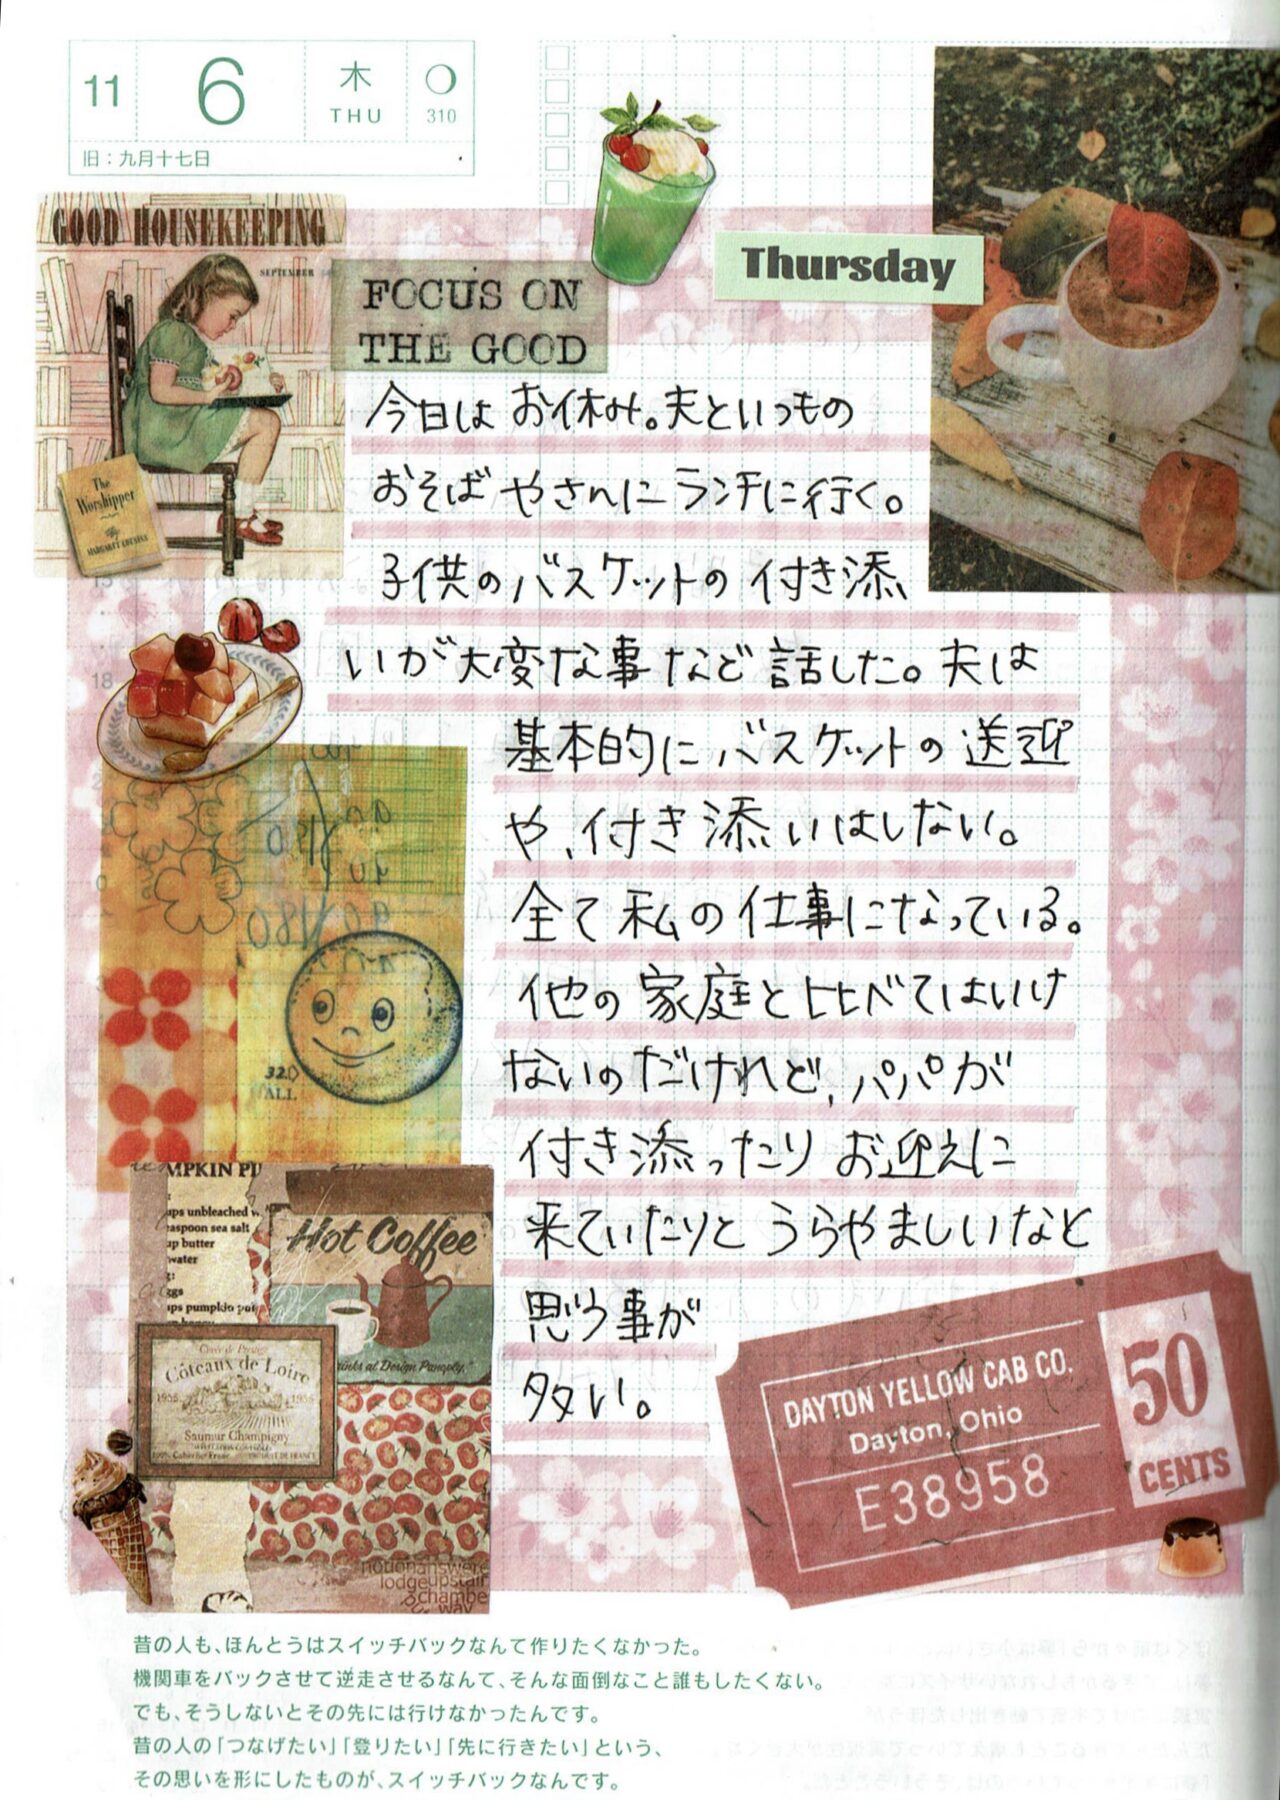 11
6
木
THU
310
旧：九月十七日
GOOD HOUSEKEEPING
SEPTEMBER
The
Worshipper
By
MARGARET COUSINS
FOCUS ON
THE GOOD
Thursday
今日は お休み。夫といつもの
おそば やさんに ランチに行く。
子供のバスケットの 付き添
いが 大変な事 など 話した。夫は
基本的に バスケットの 送迎
や、付き添いはしない。
全て 私の 仕事になっている。
他の 家庭と 比べてはいけ
ないのだけれど、パパが
付き添ったり お迎えに
来ていたりと うらやましいなと
思う事が
多い。
32
ALL
MPKIN PI
ups unbleached
easpoon sea salt
up butter
water
ggs
ups pumpkin
Hot Coffee
Drinks at Design Panoply."
Côteaux de Loire
1955
1955
Saumur Champigny
notionanswer
lodgeupstair
chambe
way
DAYTON YELLOW CAB CO.
Dayton, Ohio
E38958
50
CENTS
昔の人も、ほんとうはスイッチバックなんて作りたくなかった。
機関車をバックさせて逆走させるなんて、そんな面倒なこと誰もしたくない。
でも、そうしないとその先には行けなかったんです。
昔の人の「つなげたい」「登りたい」「先に行きたい」という、
その思いを形にしたものが、スイッチバックなんです。